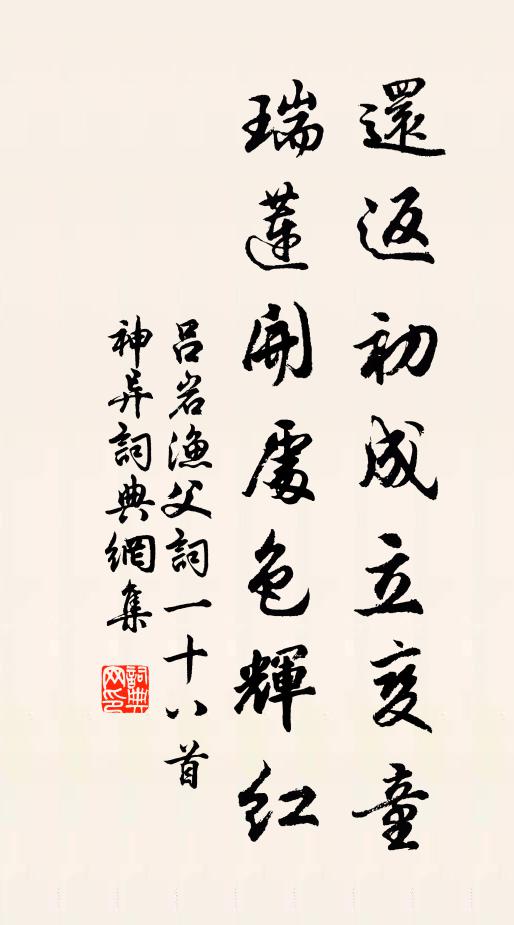 還返初成立变童
瑞蓮開處色輝紅
呂岩漁父詞一十八首
神异詞典網集
詞典网印